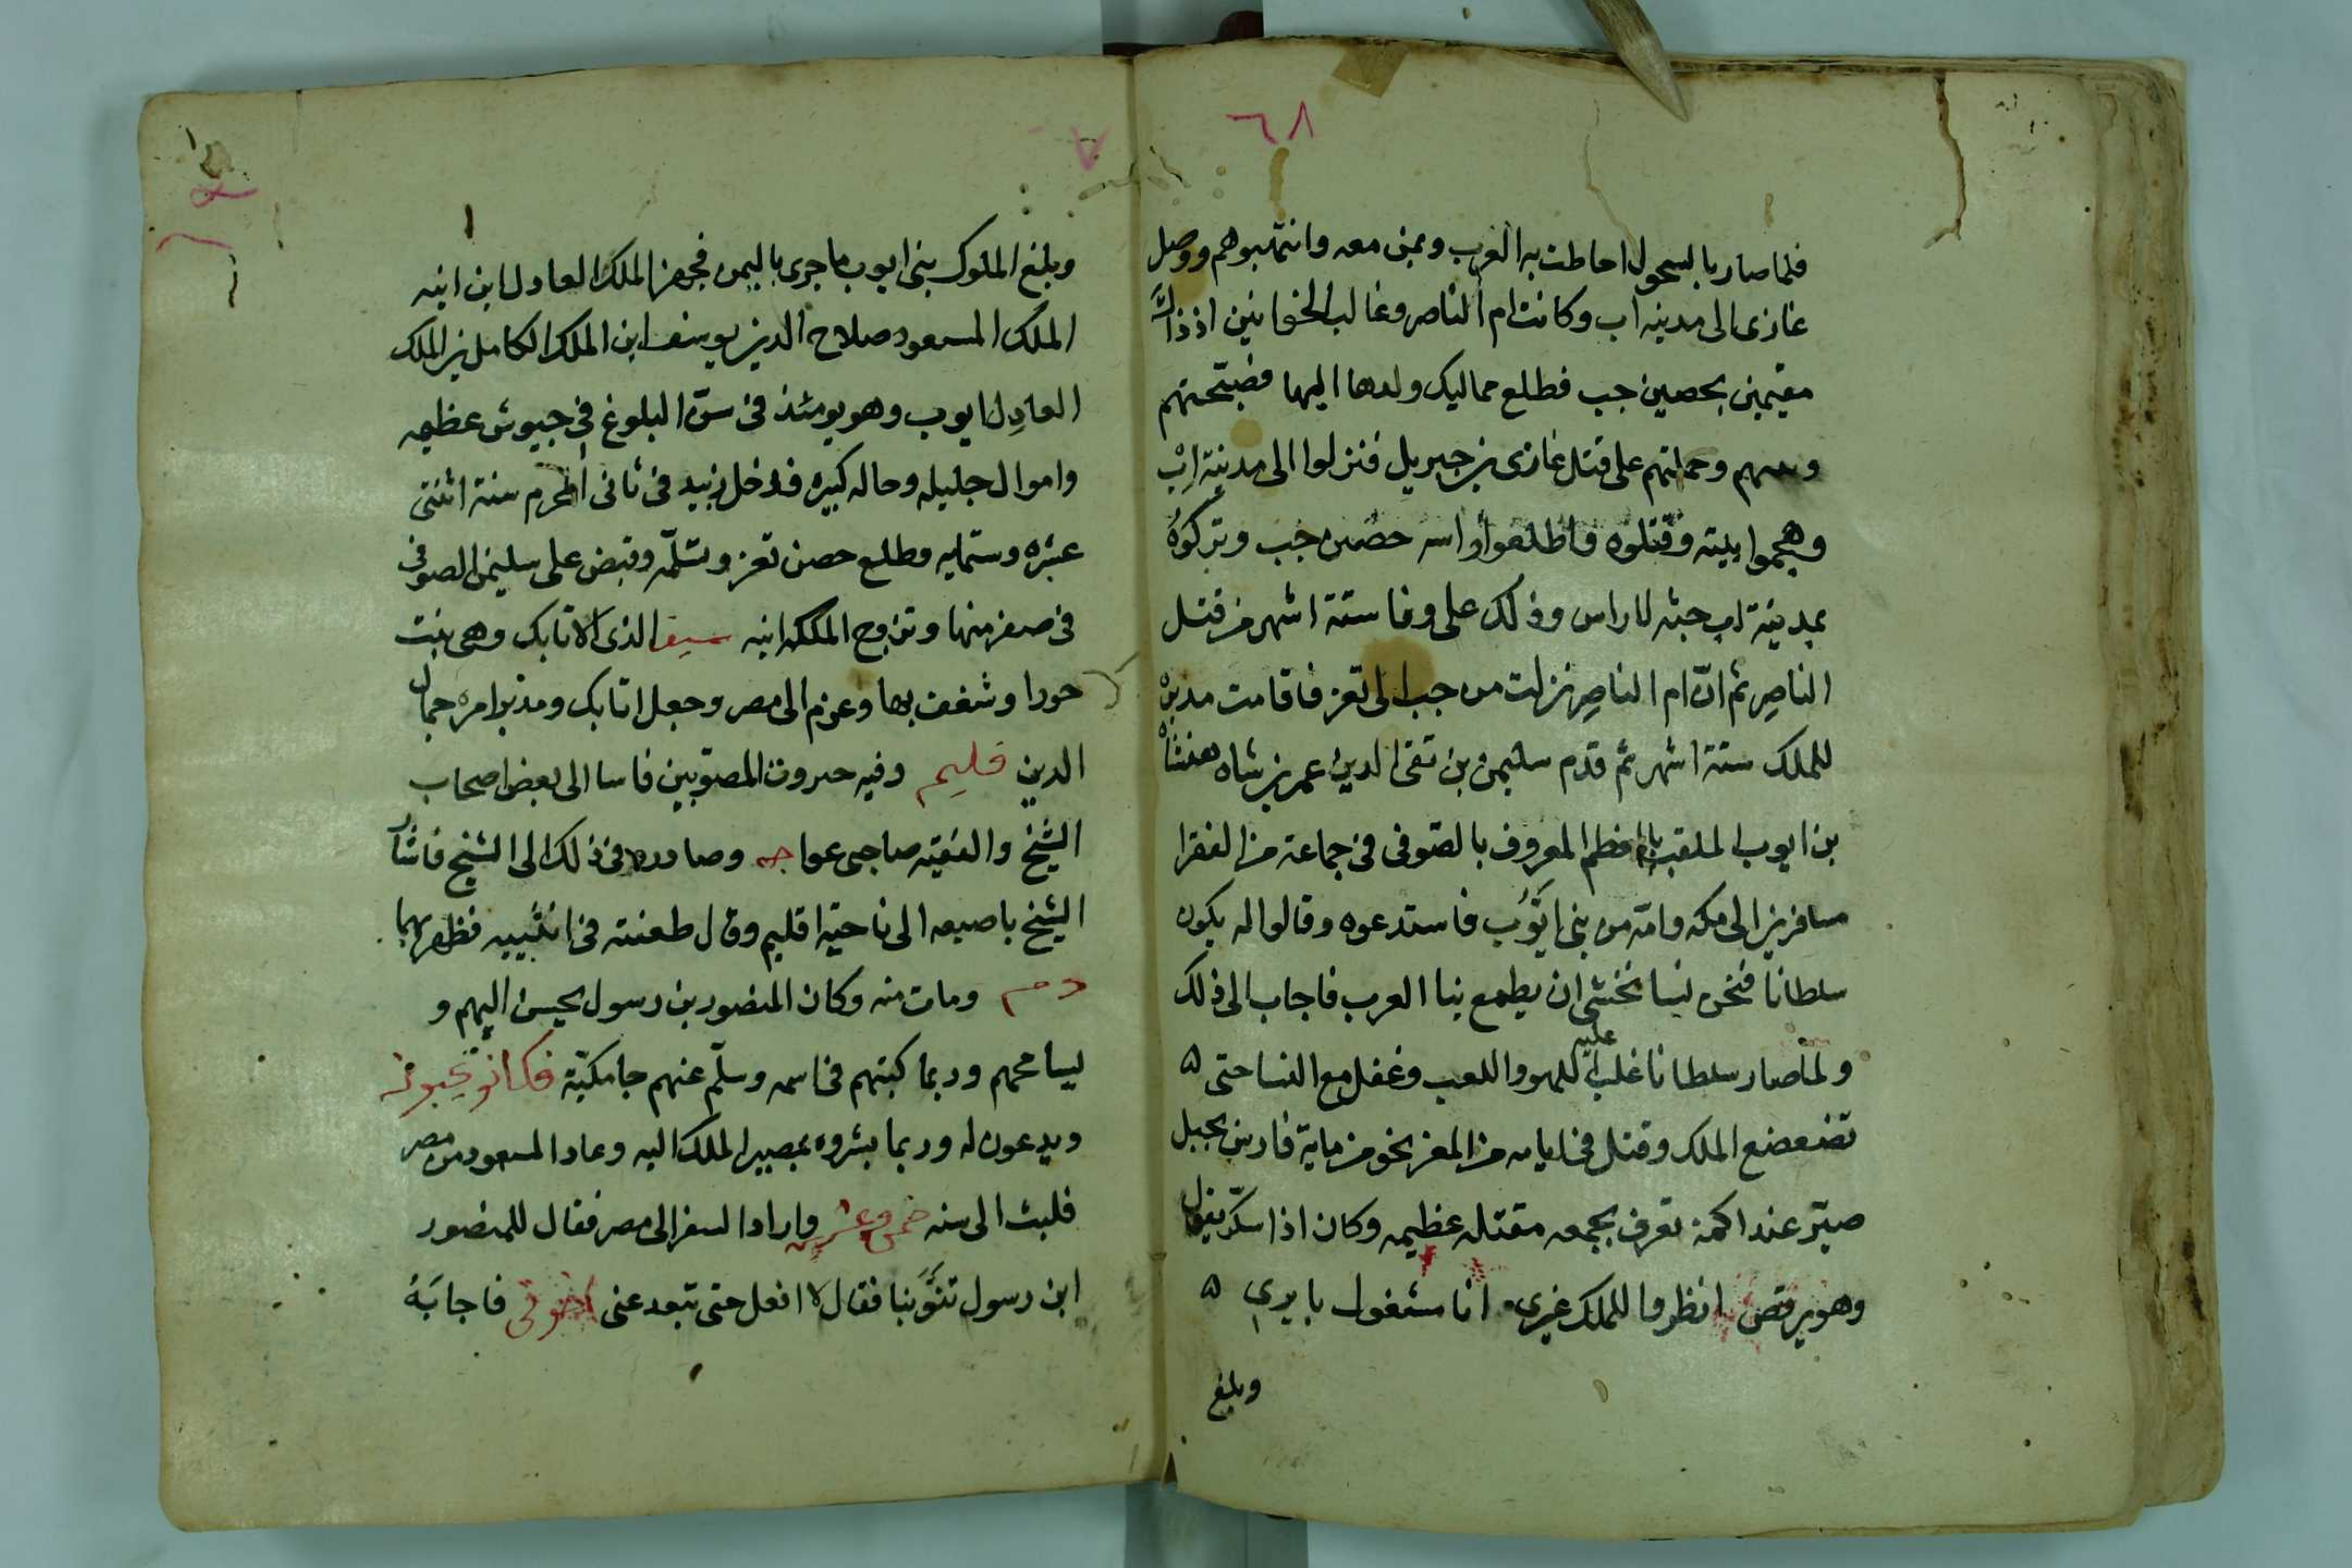 ٦٨
فلما صار بالسحول احاطت به العرب وبمن معه وانتهبوهم ووصل
غازى الى مدينه اب وكانت ام الناصر وغالب الخواتين اذ ذاك
مقيمين بحصين حب فطلع مماليك ولدها اليها فضبتحتهم
وحملتهم على قتل غازى بن جبريل فنزلوا الى مدينة اب
وهجموا بيته وقتلوه واطلعوا راسه حصن حب وتركوه
بمدينة اب جثه لا راس وذلك على وفا ستة اشهر من قتل
الناصر ثم ان ام الناصر نزلت من حب الى تعز فاقامت مدبرة
للملك ستة اشهر ثم قدم سليمن بن تقى الدين عمر بن شاه هنشاه
بن ايوب الملقب بالمعظم المعروف بالصوفى فى جماعة من الفقرا
مسافرين الى مكه وامه من بنى ايوب فاستدعوه وقالوا له يكون
سلطانا فنحن نسا نخشى ان يطمع بنا العرب فاجاب الى ذلك
ولما صار سلطانا غلب عليه اللهو واللعب وغفل مع النسا حتى ٥
تضعضع الملك وقتل فى ايامه من الغز نحو من ماية فارس بجبل
صبر عند اكمة تعرف بجمعه مقتله عظيمه وكان اذا سكر يقول
وهو يرقص انظروا للملك غيرى انا مشغول بايرى ٥
وبلغ
وبلغ الملوك بنى ايوب ما جرى باليمن فجهز الملك العادل ابن ابنه
الملك المسعود صلاح الدين يوسف ابن الملك الكامل بن الملك
العادل ايوب وهو يومئذ فى سن البلوغ فى جيوش عظيمه
واموال جليله وحاله كبيره فدخل زبيد فى ثانى المحرم سنة اثنتى
عشره وستمايه وطلع حصن تعز وتسلمه وقبض على سليمن الصوفى
فى صفر منها وتزوج الملكه ابنه سيف الذى الاتابك وهى بنت
حورا وشغف بها وعزم الى مصر وجعل اتابك ومدبر امره جمال
الدين فليم وفيه حروف المصوبين فاسا الى بعض اصحاب
الشيخ والفقيه صاحبى عواجه وصادره فى ذلك الى الشيخ فاشار
الشيخ باصبعه الى ناحية اقليم وقال طعنته فى انثييه فظهر بهما
دم ومات منه وكان المنصور بن رسول يحسن اليهم و
يسامحهم وربما كبتهم فى اسمه وسلم عنهم جامكية فكانو يحبونه
ويدعون له وربما بشروه بمصير الملك اليه وعاد المسعود من مصر
فلبث الى سنه خمس وعشرين واراد السفر الى مصر فقال للمنصور
ابن رسول تنوبنا فقال لا افعل حتى تبعد عنى اخوتى فاجابه